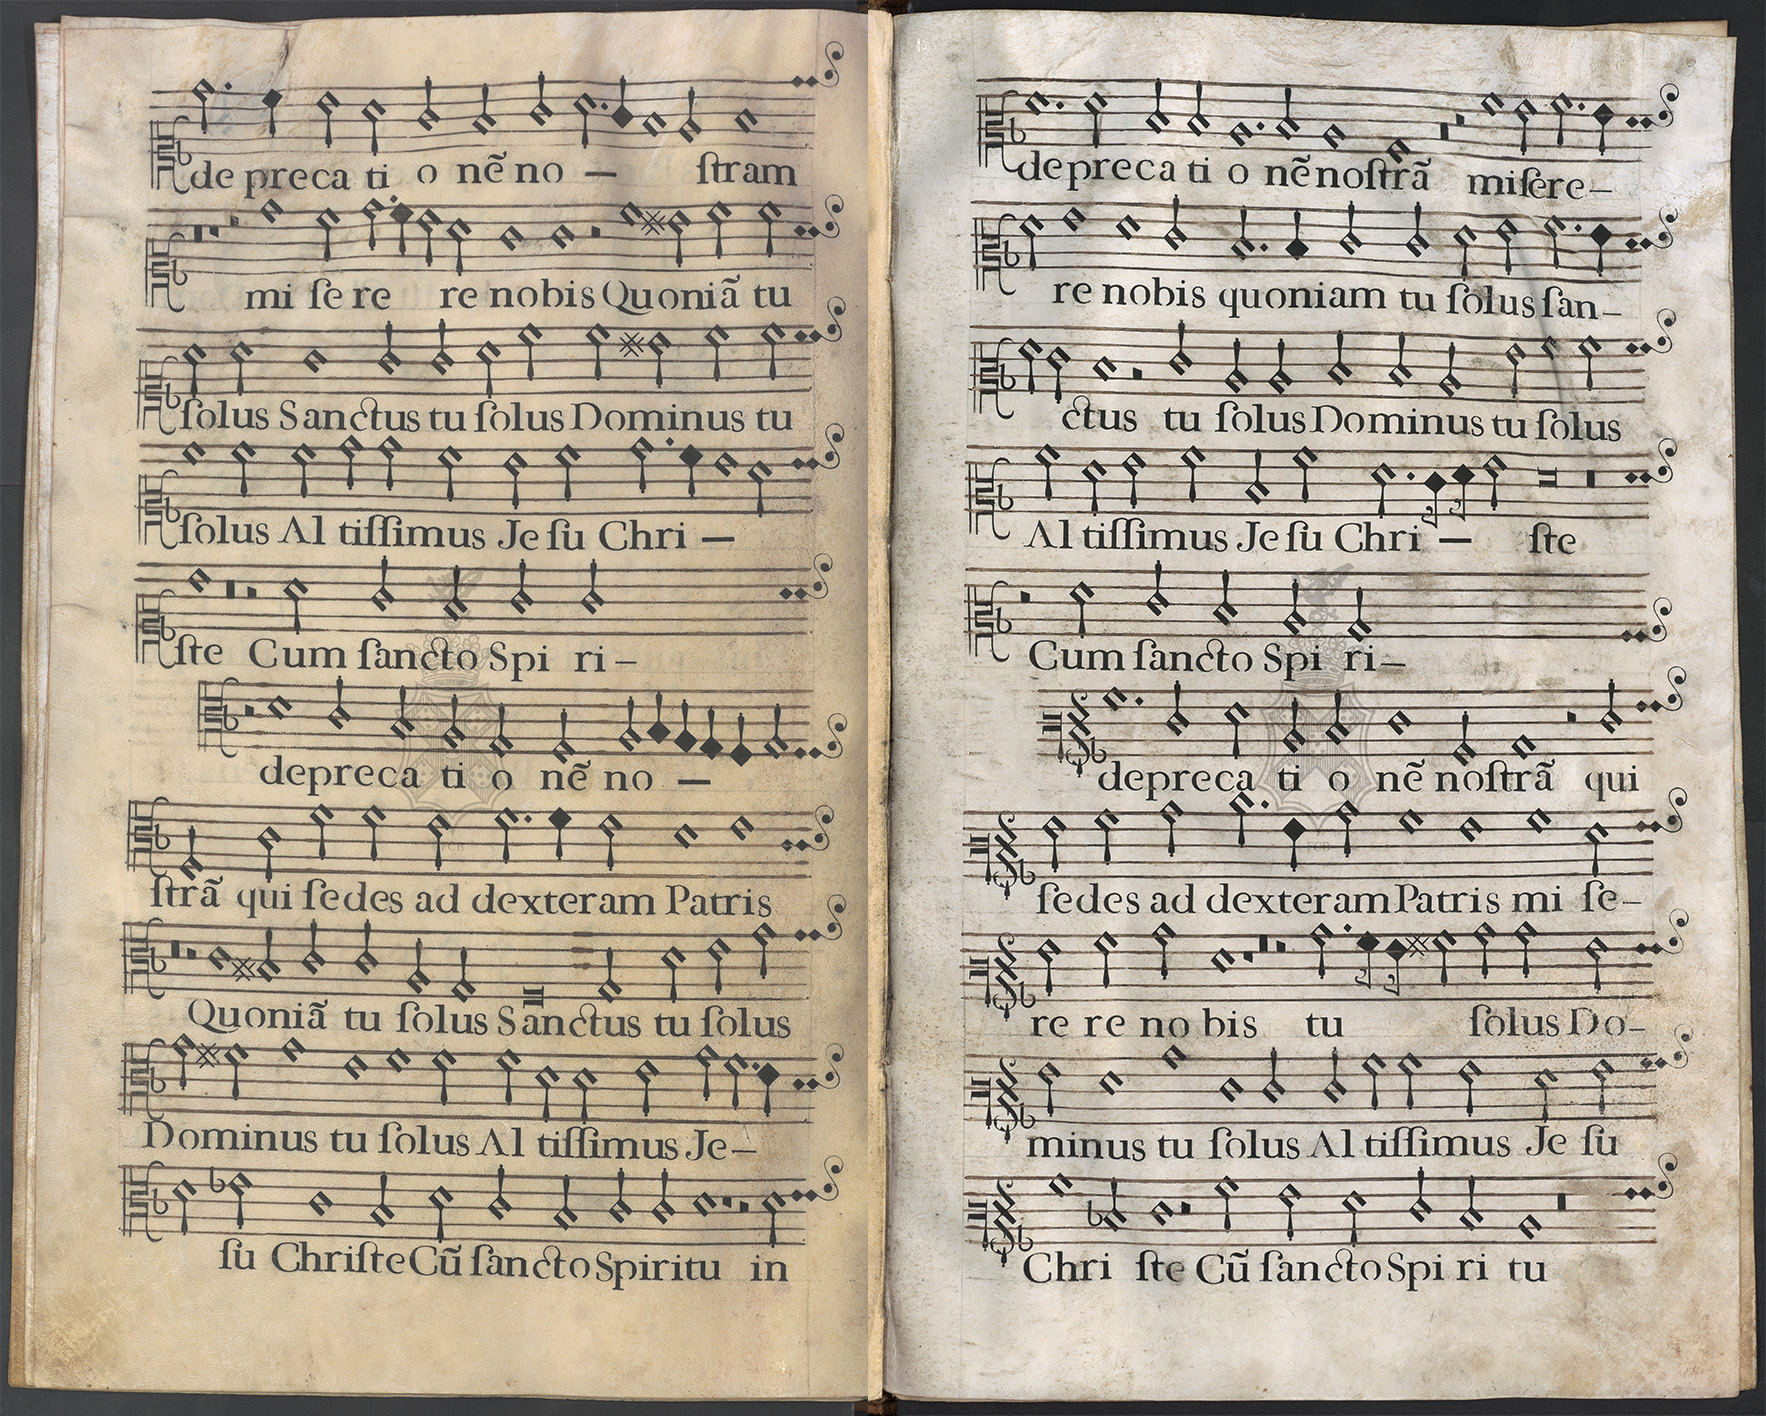 de preca ti o nẽ no — ſtram
mi ſe re re nobis Quoniã tu
ſolus Sanctus tu ſolus Dominus tu
ſolus Al tiſſimus Je ſu Chri —
ſte Cum ſancto Spi ri –
depreca ti o nẽ no —
ſtrã qui ſedes ad dexteram Patris
Quoniã tu ſolus Sanctus tu ſolus
Dominus tu ſolus Al tiſſimus Je–
ſu Chriſte Cũ ſancto Spiritu in
depreca ti o nẽ noſtrã miſere–
re nobis quoniam tu ſolus ſan–
ctus tu ſolus Dominus tu ſolus
Al tiſſimus Je ſu Chri — ſte
Cum ſancto Spi ri–
depreca ti o nẽ noſtrã qui
ſedes ad dexteram Patris mi ſe–
re re no bis tu ſolus Do–
minus tu ſolus Al tiſſimus Je ſu
Chri ſte Cũ ſancto Spi ri tu